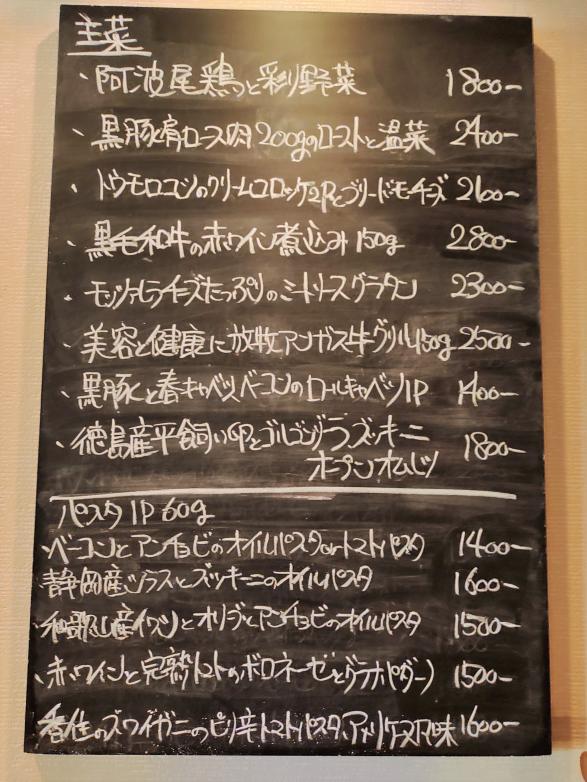 主菜
、阿波尾鶏と彩り野菜 1800-
、黒豚肩ロース肉200gのローストと温菜 2400-
、トウモロコシのクリームコロッケ2Pとブリードモーチーズ 2600-
、黒毛和牛の赤ワイン煮込み150g 2800-
、モッツァレラチーズたっぷりのミートソースグラタン 2300-
、美容と健康に放牧アンガス牛グリル150g 2500-
、黒豚と春キャベツ、ベーコンのロールキャベツ1P 1400-
、徳島産平飼い卵とゴルゴンゾーラ、ズッキーニ
オープンオムレツ 1800-
パスタ1P 60g
、ベーコンとアンチョビのオイルパスタorトマトパスタ 1400-
、静岡産シラスとズッキーニのオイルパスタ 1600-
、和歌山産イワシとオリーブとアンチョビのオイルパスタ 1500-
、赤ワインと完熟トマトのボロネーゼ 1500-
、香住のズワイガニのピリ辛トマトパスタ、アメリケーヌ風味 1600-